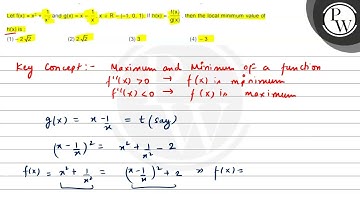 Let f(x) = x² + 1/x² and g(x) = x - 1/x, x ∈ R - {-1, 0, 1}. If h(x) = f(x)/g(x), then the local minimum value of
h(x) is :
(1) -2√2 (2) 2√2 (3) 3 (4) -3
Key Concept :- Maximum and Minimum of a function
f''(x) > 0 → f(x) is minimum
f''(x) < 0 → f(x) is maximum
g(x) = x - 1/x = t (say)
(x - 1/x)² = x² + 1/x² - 2
f(x) = x² + 1/x² = (x - 1/x)² + 2 ⇒ f(x) =